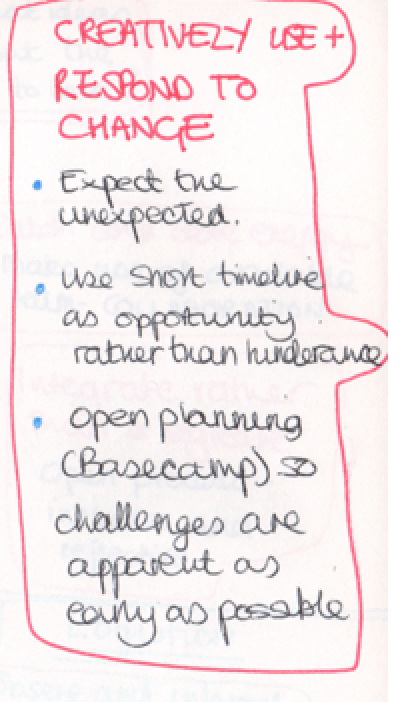 CREATIVELY USE +
RESPOND TO
CHANGE
• Expect the
unexpected.
• use short timeline
as opportunity
rather than hinderance
• open planning
(Basecamp) so
challenges are
apparent as
early as possible